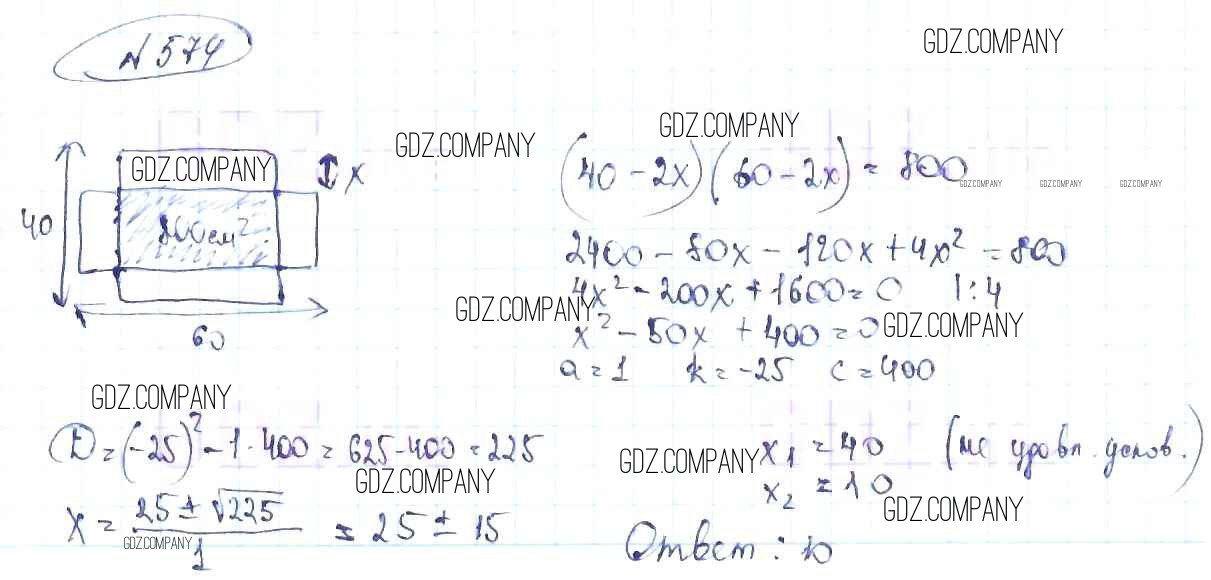 N 574
GDZ.COMPANY
GDZ.COMPANY
GDZ.COMPANY
GDZ.COMPANY
x
40
800 см²
60
(40 - 2x)(60 - 2x) = 800
GDZ.COMPANY GDZ.COMPANY GDZ.COMPANY
2400 - 80x - 120x + 4x² = 800
4x² - 200x + 1600 = 0 |:4
GDZ.COMPANY
x² - 50x + 400 = 0
GDZ.COMPANY
a = 1 k = -25 c = 400
GDZ.COMPANY
D = (-25)² - 1·400 = 625 - 400 = 225
GDZ.COMPANY
x = (25 ± √225)/1 = 25 ± 15
GDZ.COMPANY
GDZ.COMPANY
x₁ = 40 (не удовл. услов.)
x₂ = 10
GDZ.COMPANY
Ответ: 10